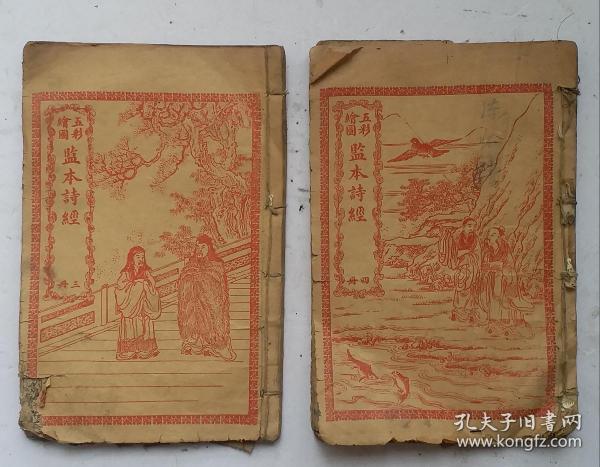 五彩
繪圖
監本詩經
三冊
五彩
繪圖
監本詩經
四冊
孔夫子旧书网
www.kongfz.com